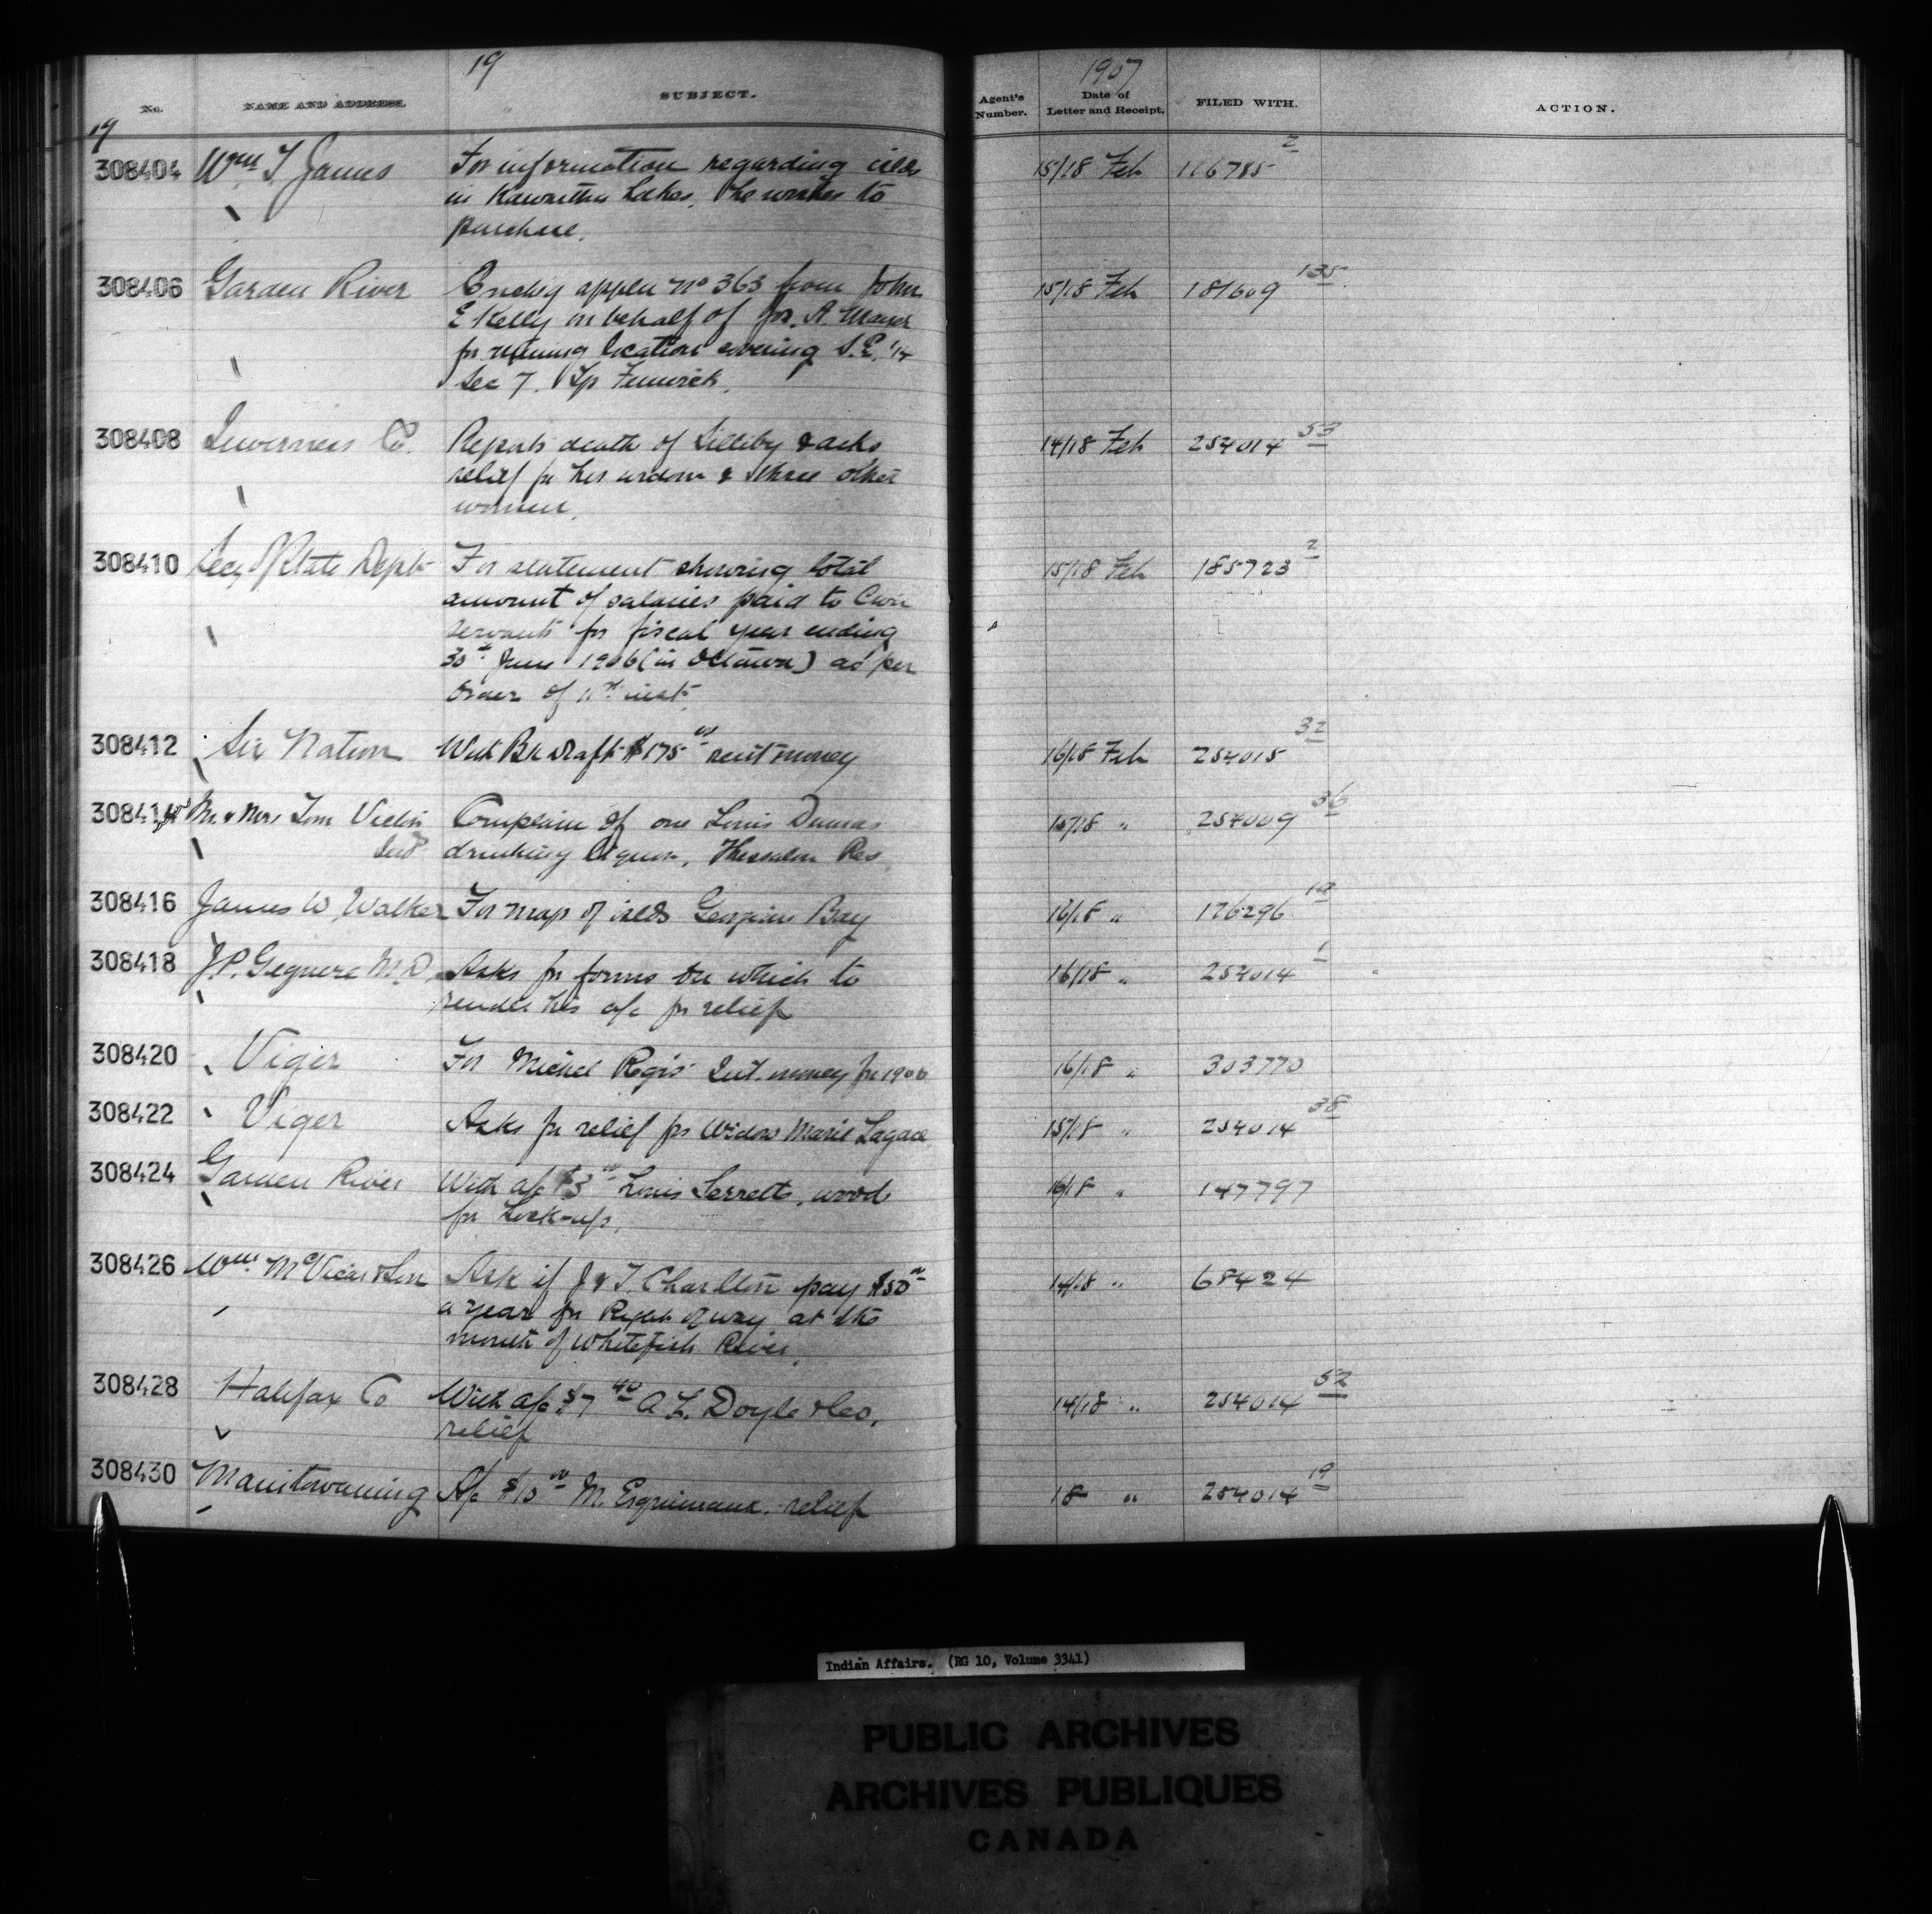 19
1907
No. NAME AND ADDRESS. SUBJECT. Agent's Number. Date of Letter and Receipt. FILED WITH. ACTION.
19
308404 Wm. T. James For information regarding islds 15/18 Feb 116785 2
in Kawartha Lakes, he wishes to
purchase.
308406 Garden River Enclsg appln No 363 from John 15/18 Feb 181609 135
E Kelly on behalf of Jos. A. Mayer
for mining location covering S.E. 1/4
Sec 7. Tp Fenwick.
308408 Inverness Co. Reports death of & asks 14/18 Feb 254014 53
relief for his widow & three other
women.
308410 Secy of State Dept For statement showing total 15/18 Feb 185723 2
amount of salaries paid to Civil
servants for fiscal year ending
30th June 1906 (in Ottawa) as per
Order of 11th inst.
308412 Six Nation With Bk Draft $175 00 rent money 16/18 Feb 254015 32
308414 Mr. & Mrs Tom Complain of one Louis Dumas 15/18 " 254009 36
drinking liquor, Thessalon Res
308416 James W. Walker For map of islds Georgian Bay 16/18 " 126296
308418 J.P. M.D. Asks for forms on which to 16/18 " 254014 1
render his a/c for relief
308420 Viger For Michel Regis' Int. money for 1906 16/18 " 303770
308422 Viger Asks for relief for Widow Marie Lagace 15/18 " 254014 38
308424 Garden River With a/c $3 00 Louis wood 16/18 " 147797
for Lock-up.
308426 Wm. McVicar & Son Ask if J & T. Charlton pay $50 00 14/18 " 68424
a year for Right of way at the
mouth of Whitefish River.
308428 Halifax Co With a/c $7 40 A L. Doyle & Co. 14/18 " 254014 52
relief
308430 Manitowaning A/c $10 00 M. Esquimaux. relief 18 " 254014 19
Indian Affairs. (RG 10, Volume 3341)
PUBLIC ARCHIVES
ARCHIVES PUBLIQUES
CANADA